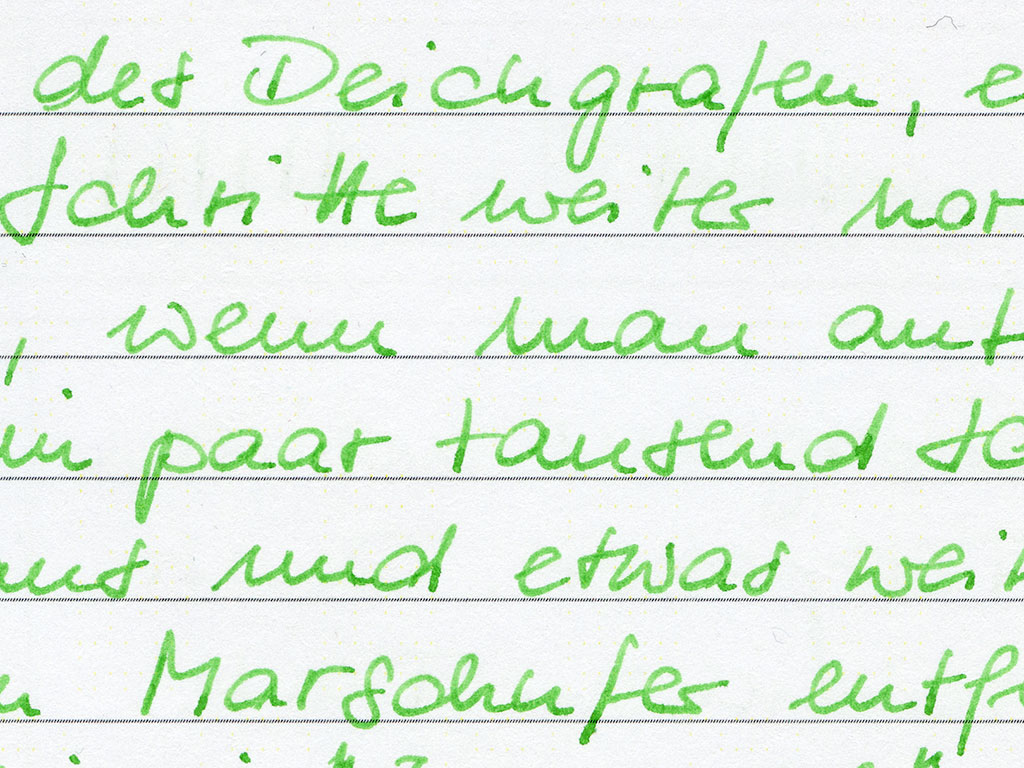 des Deichgrafen, e
Schritte weiter nor
, wenn man auf
ein paar tausend Sc
aus und etwas weit
Marschufer entfe